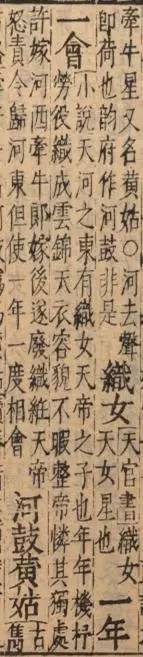 牽牛星又名黃姑○河去聲
即荷也韵府作河鼓非是
織女
天官書織女
天女星也
一年
一會
小說天河之東有織女天帝之子也年年機杼
勞役織成雲錦天衣容貌不暇整帝憐其獨處
許嫁河西牽牛郎嫁後遂廢織絍天帝
怒責令歸河東但使一年一度相會
河鼓黃姑
古